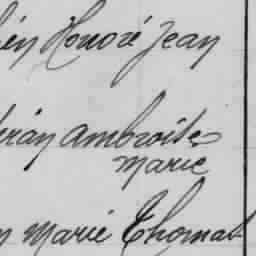 én Honoré Jean
rán Ambroise
Marie
n Marie Thomas